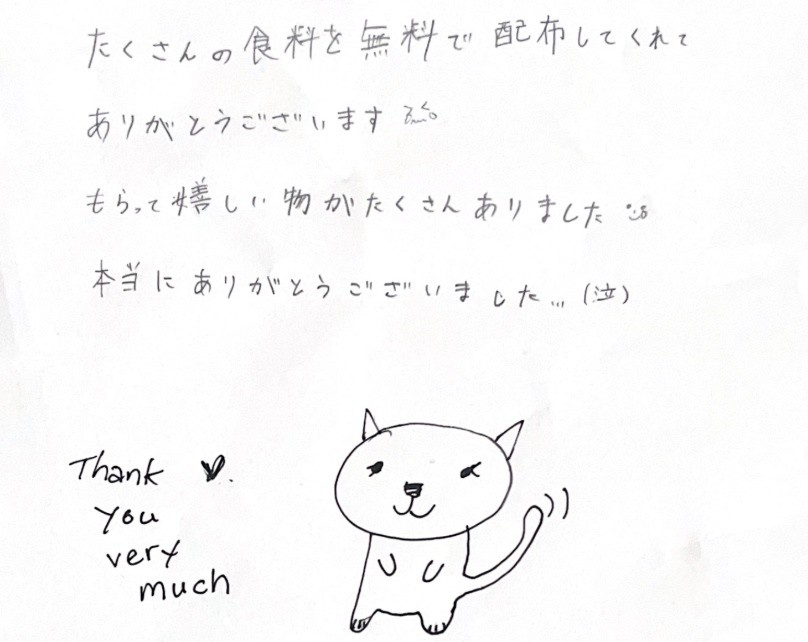 たくさんの食料を無料で配布してくれて
ありがとうございます
もらって嬉しい物がたくさんありました
本当にありがとうございました…(泣)
Thank
you
very
much